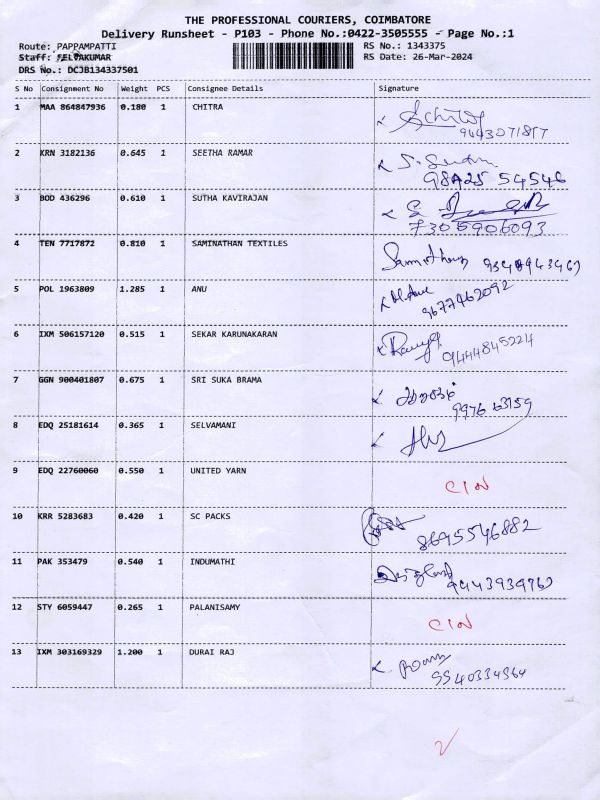 THE PROFESSIONAL COURIERS, COIMBATORE
Delivery Runsheet - P103 - Phone No.:0422-3505555 - Page No.:1
Route: PAPPAMPATTI RS No.: 1343375
Staff: SELVAKUMAR RS Date: 26-Mar-2024
DRS No.: DCJB134337501
S No Consignment No Weight PCS Consignee Details Signature
1 MAA 864847936 0.180 1 CHITRA
2 KRN 3182136 0.645 1 SEETHA RAMAR
98425 54546
3 BOD 436296 0.610 1 SUTHA KAVIRAJAN
7305906093
4 TEN 7717872 0.810 1 SAMINATHAN TEXTILES
5 POL 1963809 1.285 1 ANU
9677462092
6 IXM 506157120 0.515 1 SEKAR KARUNAKARAN
9444845224
7 GGN 900401807 0.675 1 SRI SUKA BRAMA
9976 63159
8 EDQ 25181614 0.365 1 SELVAMANI
9 EDQ 22760060 0.550 1 UNITED YARN
10 KRR 5283683 0.420 1 SC PACKS
8695546882
11 PAK 353479 0.540 1 INDUMATHI
12 STY 6059447 0.265 1 PALANISAMY
13 IXM 303169329 1.200 1 DURAI RAJ